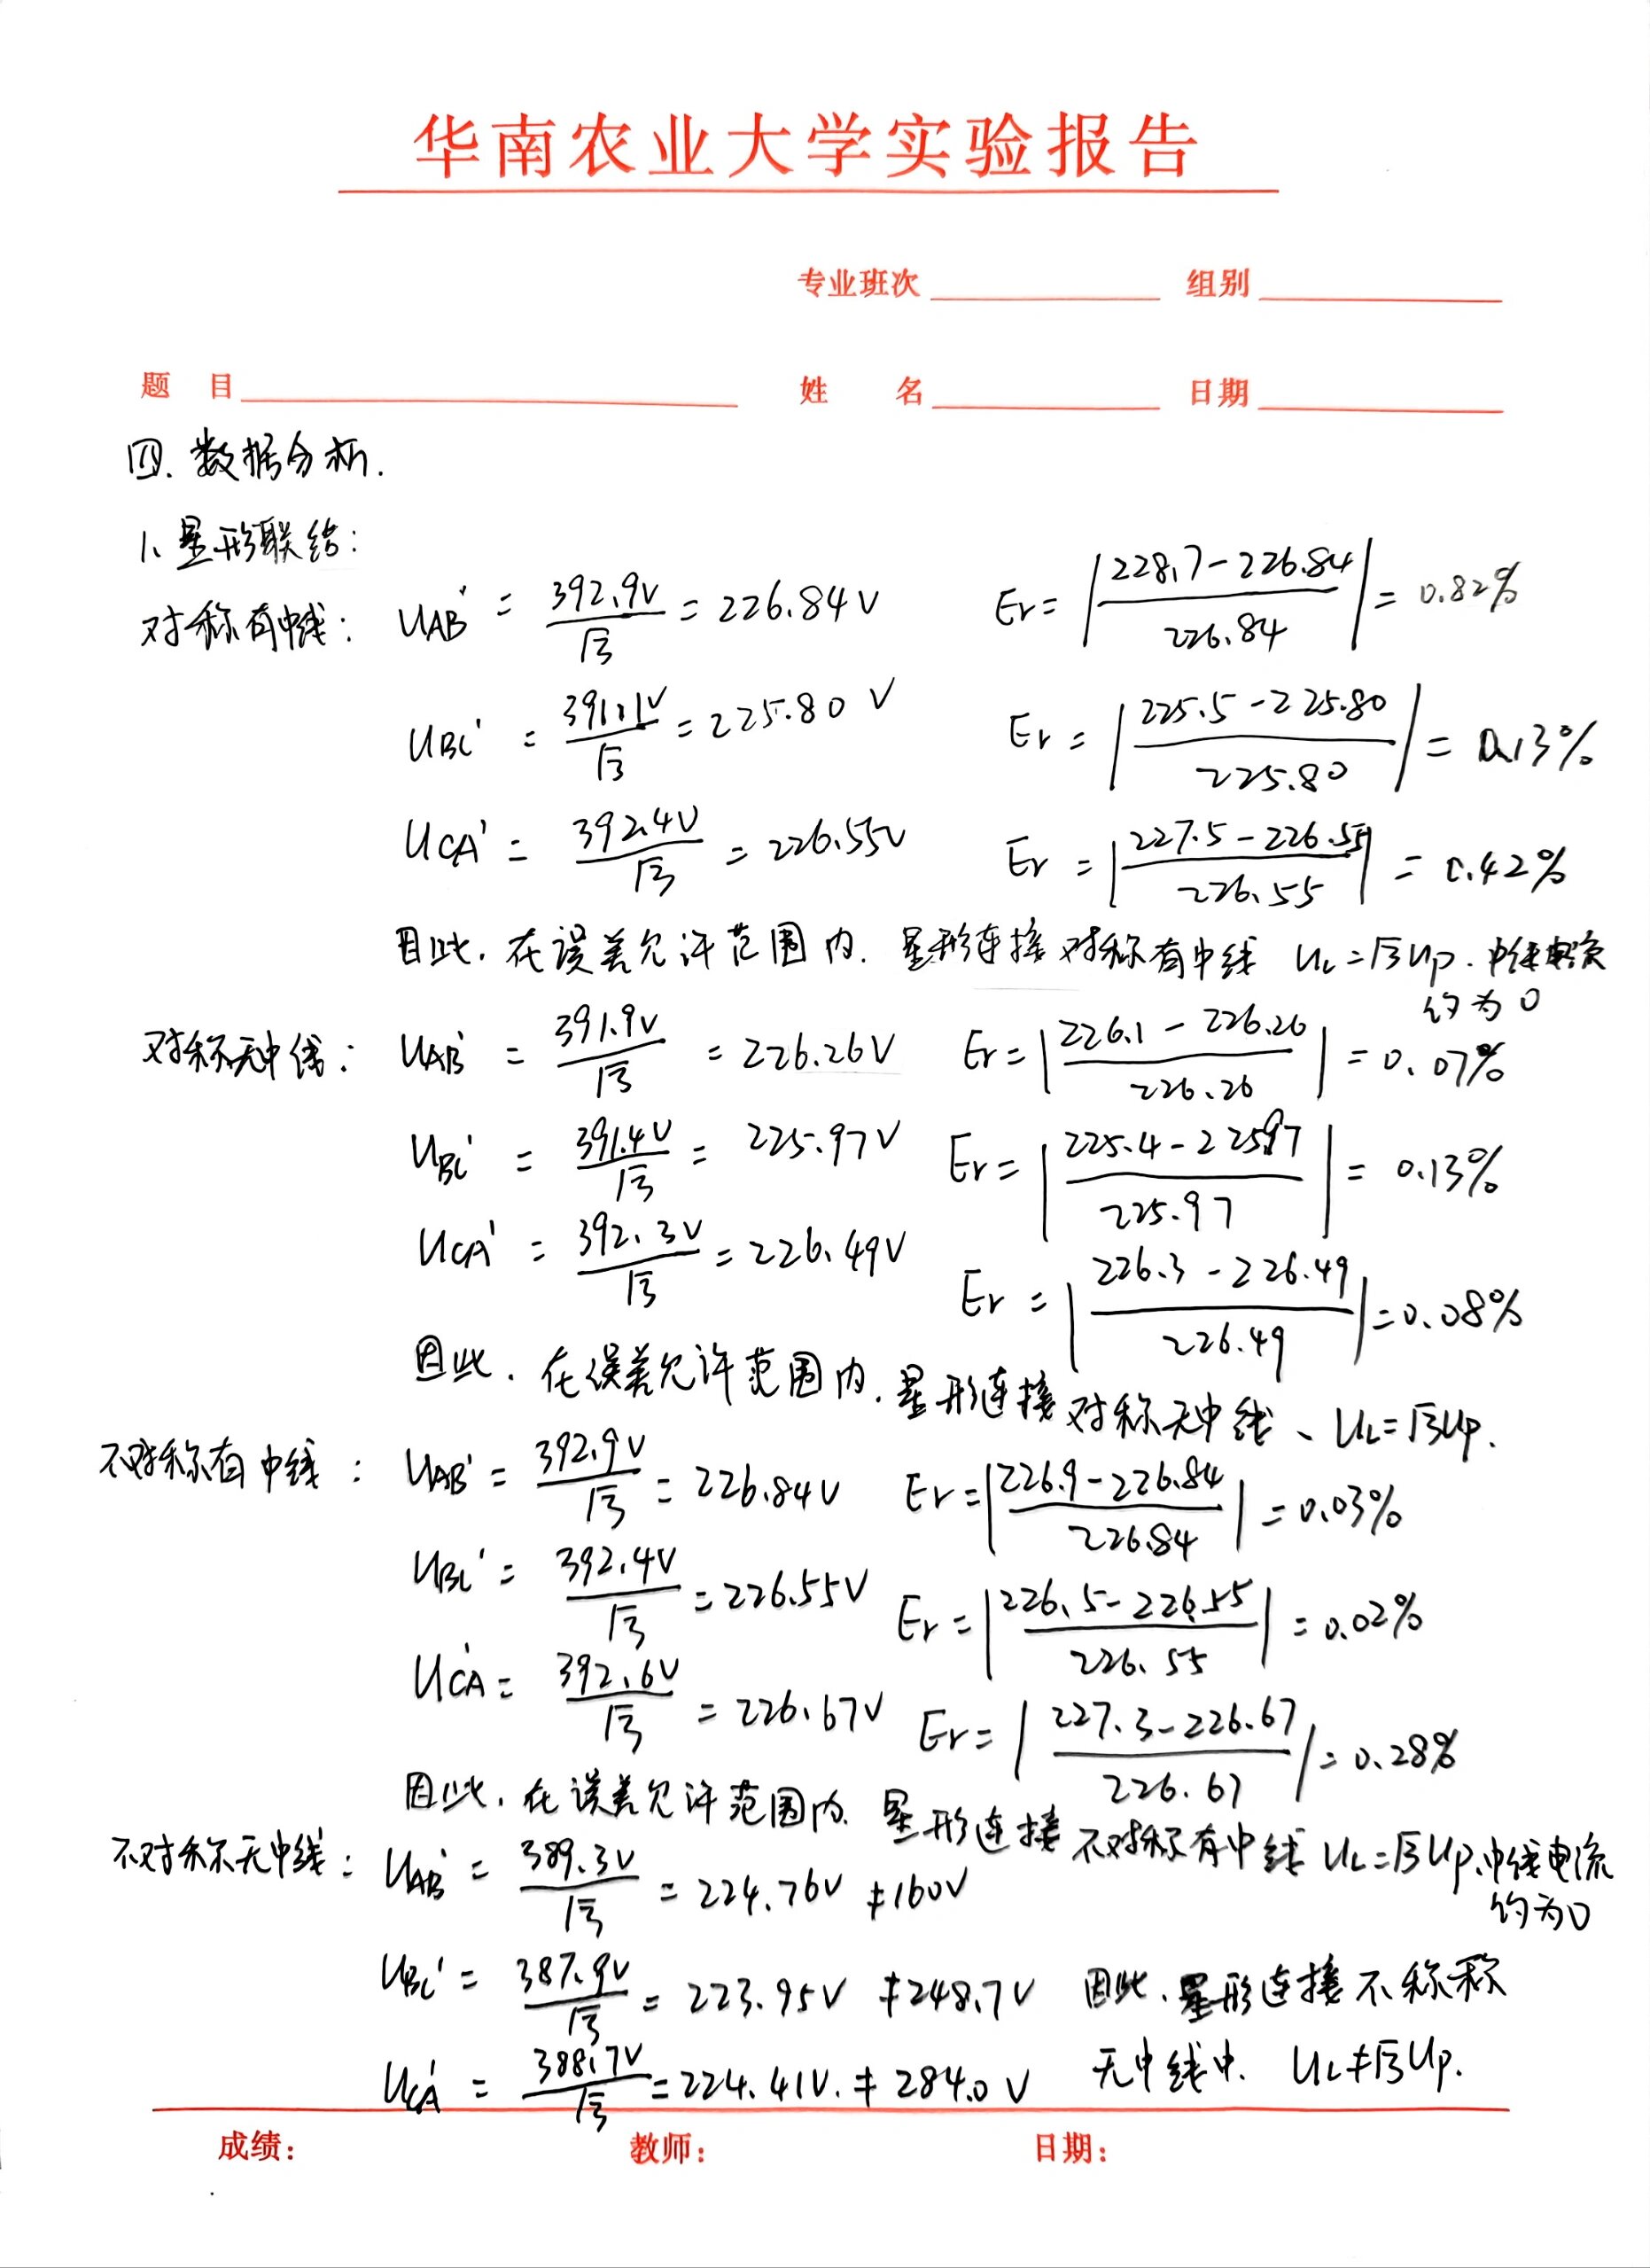 华南农业大学实验报告
专业班次 组别
题 目 姓 名 日期
四. 数据分析.
1、星形联结:
对称有中线: UAB' = 392.9V/√3 = 226.84V Er = |228.7-226.84/226.84| = 0.82%
UBC' = 391.1V/√3 = 225.80 V Er = |225.5-225.80/225.80| = 0.13%
UCA' = 392.4V/√3 = 226.55V Er = |227.5-226.55/226.55| = 0.42%
因此. 在误差允许范围内. 星形连接对称有中线 UL=√3UP. 中线电流
约为0
对称无中线: UAB' = 391.9V/√3 = 226.26V Er = |226.1-226.26/226.26| = 0.07%
UBC' = 391.4V/√3 = 225.97V Er = |225.4-225.97/225.97| = 0.13%
UCA' = 392.3V/√3 = 226.49V Er = |226.3-226.49/226.49| = 0.08%
因此. 在误差允许范围内. 星形连接对称无中线、UL=√3UP.
不对称有中线: UAB' = 392.9V/√3 = 226.84V Er = |226.9-226.84/226.84| = 0.03%
UBC' = 392.4V/√3 = 226.55V Er = |226.5-226.55/226.55| = 0.02%
UCA' = 392.6V/√3 = 226.67V Er = |227.3-226.67/226.67| = 0.28%
因此. 在误差允许范围内. 星形连接不对称有中线 UL=√3UP.中线电流
约为0
不对称无中线: UAB' = 389.3V/√3 = 224.76V ≠160V
UBC' = 387.9V/√3 = 223.95V ≠248.7V 因此、星形连接不称称
UCA' = 388.7V/√3 = 224.41V. ≠ 284.0V 无中线中. UL≠√3UP.
成绩: 教师: 日期: